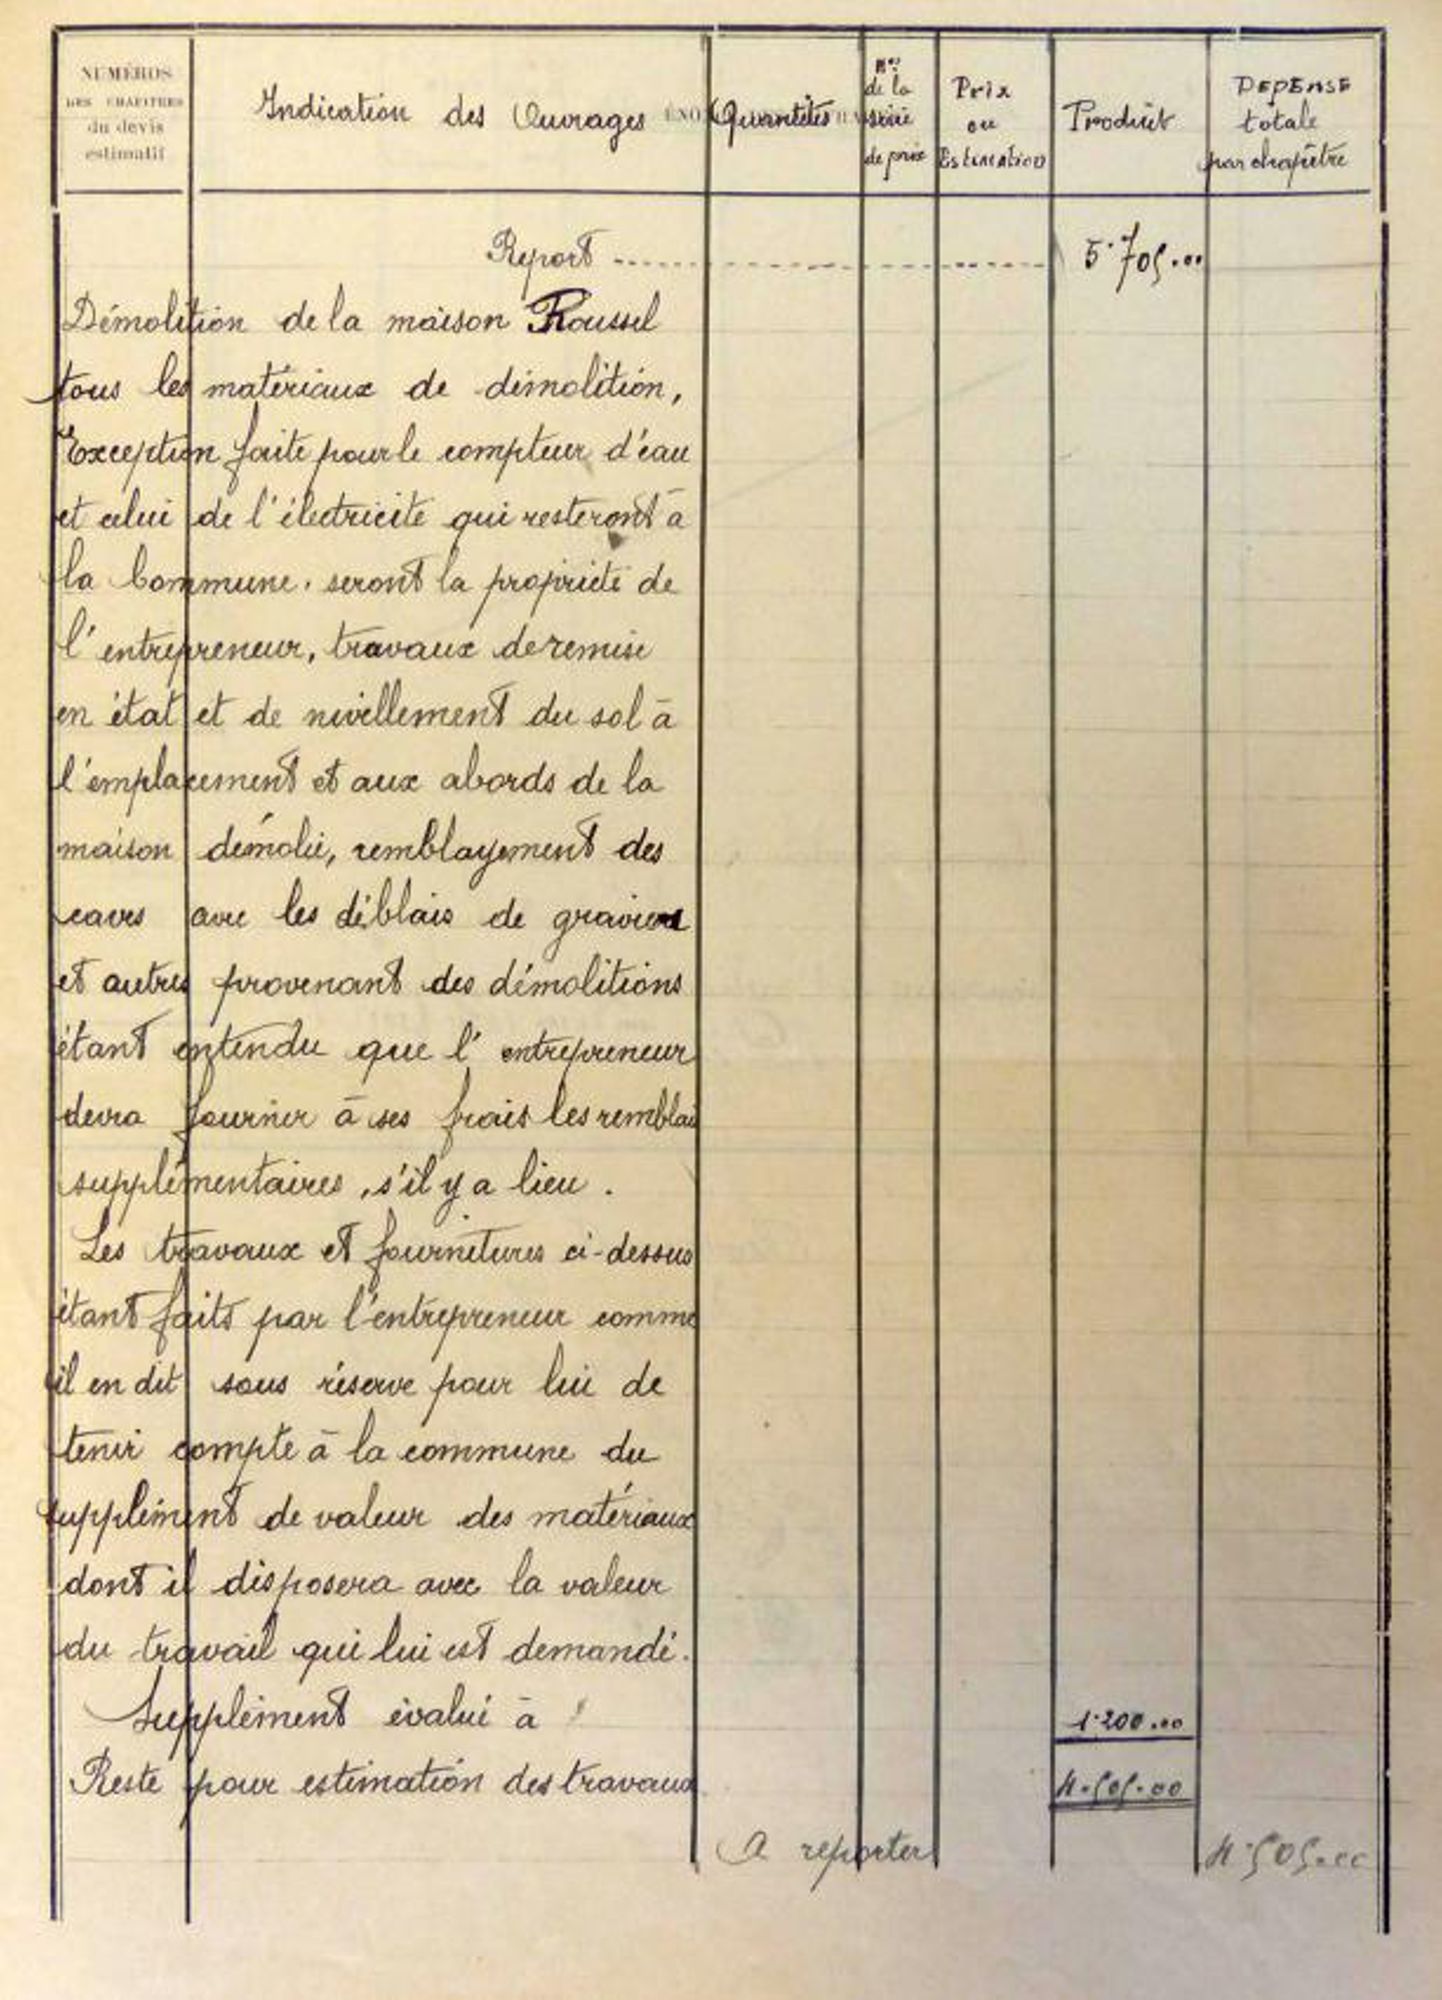 NUMÉROS
DES CHAPITRES
du devis
estimatif
Indication des Ouvrages
Quantités
Nos
de la
série
de prix
Prix
ou
Estimation
Produit
DEPENSE
totale
par chapitre
Report 5.705.00
Démolition de la maison Roussel
tous les matériaux de démolition,
Exception faite pour le compteur d'eau
et celui de l'électricité qui resteront à
la Commune. seront la propriété de
l'entrepreneur, travaux de remise
en état et de nivellement du sol à
l'emplacement et aux abords de la
maison démolie, remblayement des
caves avec les déblais de graviers
et autres provenant des démolitions
étant entendu que l'entrepreneur
devra fournir à ses frais les remblais
supplémentaires, s'il y a lieu.
Les travaux et fournitures ci-dessus
étant faits par l'entrepreneur comme
il en dit sous réserve pour lui de
tenir compte à la commune du
supplément de valeur des matériaux
dont il disposera avec la valeur
du travail qui lui est demandé.
Supplément évalué à 1.200.00
Reste pour estimation des travaux 4.505.00
A reporter 4.505.00